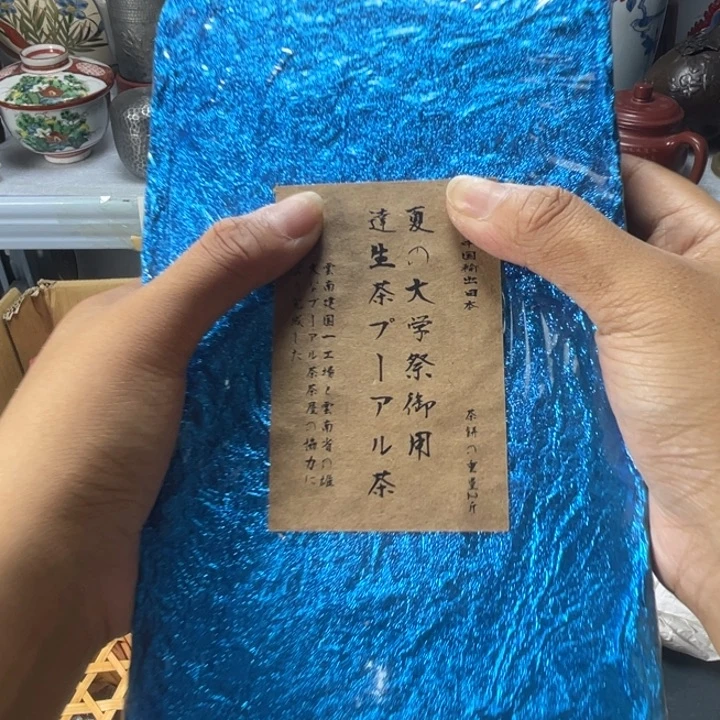 国输出日本
茶餅の重量2斤
夏の大学祭御用
達生茶プーアル茶
雲南建国一工場と雲南省の堀
プーアル茶茶屋の協力に
成した